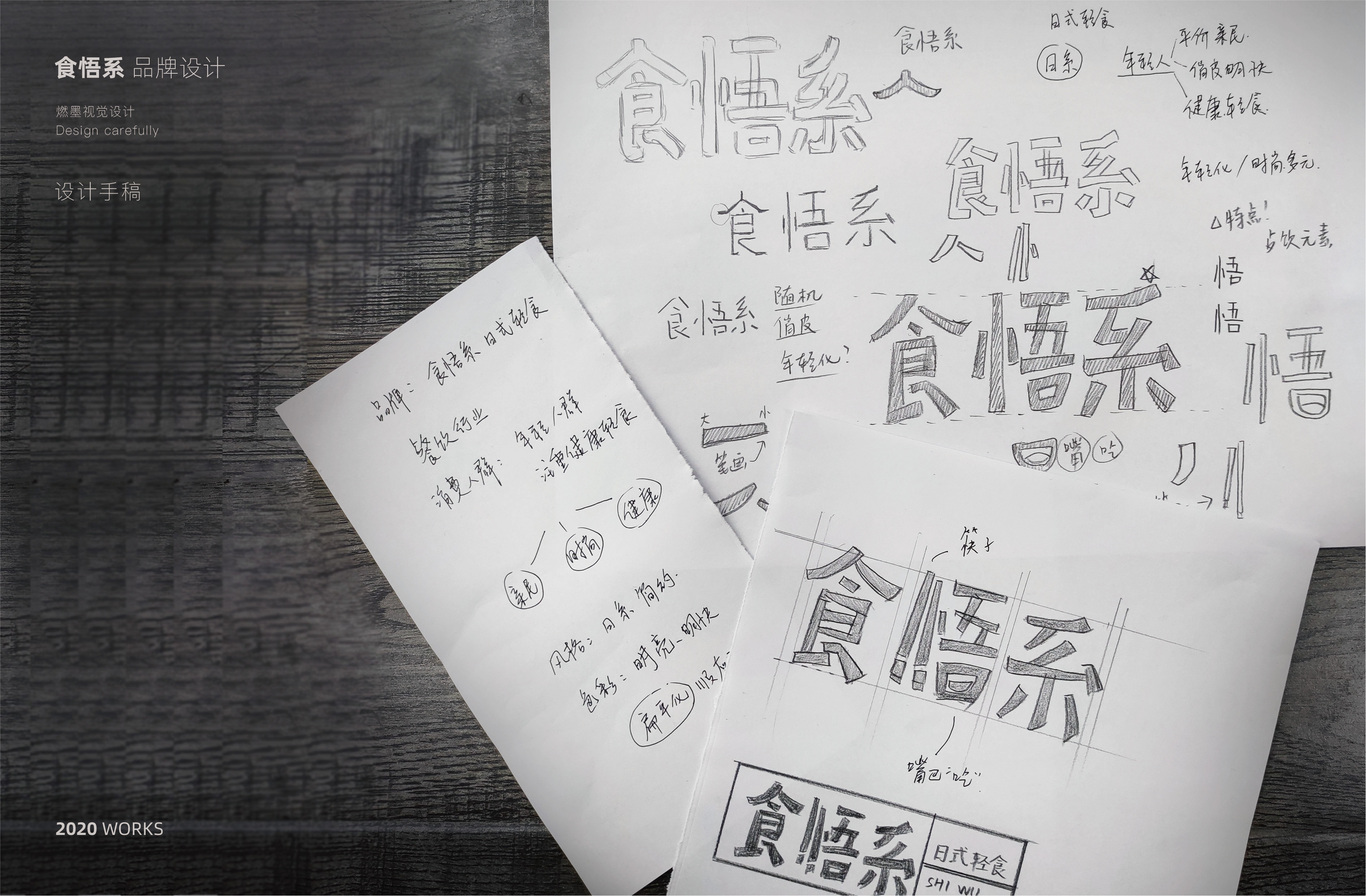 食悟系 品牌设计
燃墨视觉设计
Design carefully
设计手稿
2020 WORKS
食悟系
食悟系
日式轻食
日系
年轻人
平价 亲民
俏皮明快
健康轻食
食悟系
年轻化 / 时尚多元
食悟系
特点!
餐饮元素
悟
悟
悟
食悟系
随机
俏皮
年轻化?
食悟系
大
小
笔画
嘴
吃
小
品牌: 食悟系 日式轻食
餐饮行业
消费人群: 年轻人群
注重健康轻食
亲民
时尚
健康
风格: 日系 简约.
色彩: 明亮、明快
扁平化
筷子
食悟系
嘴巴"吃"
食悟系
日式轻食
SHI WU